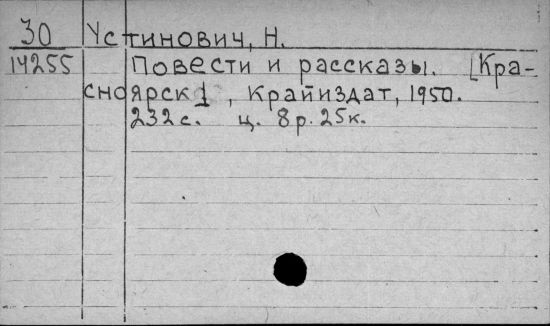 30 Устинович, Н.
14255 Повести и рассказы. [Кра-
сноярск], Крайиздат, 1950.
232с. ц. 8р. 25к.